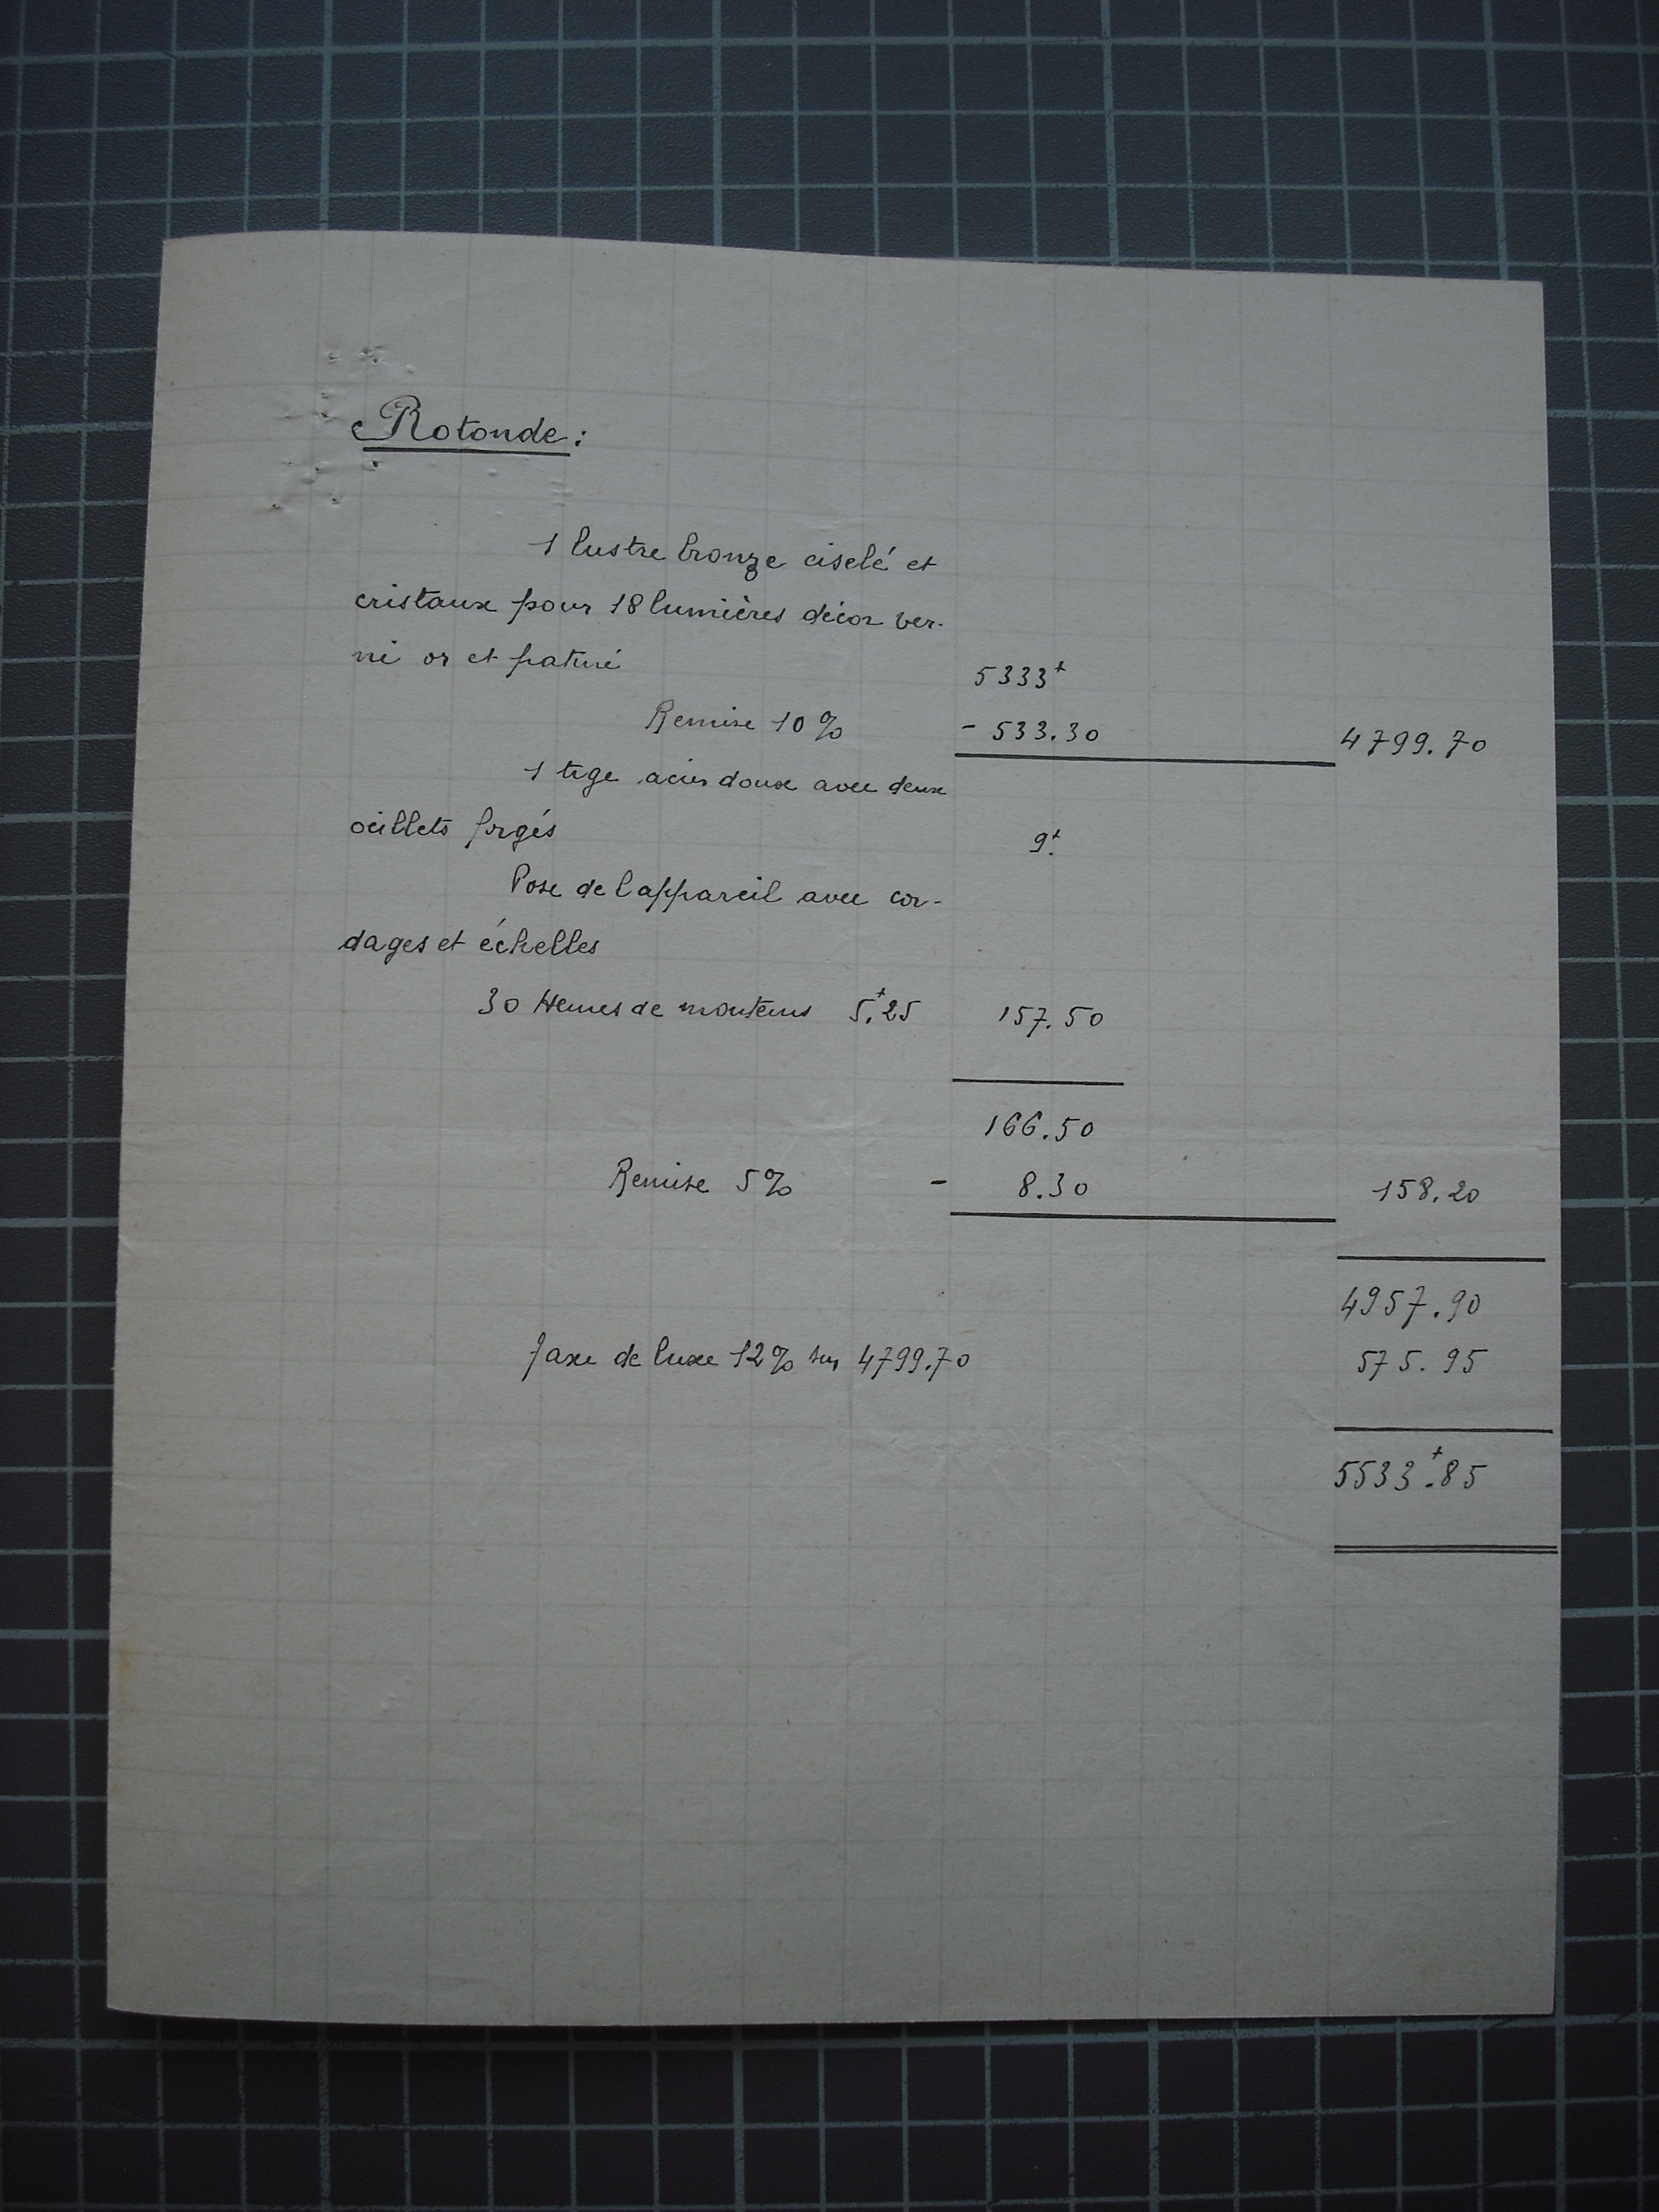 Rotonde :
1 lustre bronze ciselé et
cristaux pour 18 lumières décor ver-
ni or et patiné 5333+
Remise 10% - 533.30 4799.70
1 tige acier doux avec deux
oeillets forgés 9+.
Pose de l appareil avec cor-
dages et échelles
30 Heures de monteurs 5+.25 157.50
166.50
Remise 5% - 8.30 158.20
4957.90
Taxe de luxe 12% sur 4799.70 575.95
5533+.85